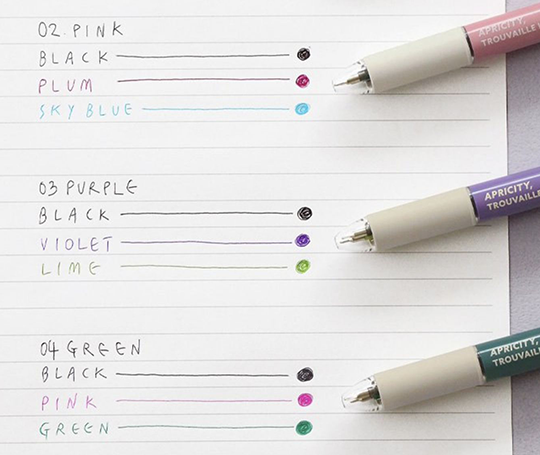 02. PINK
BLACK
PLUM
SKY BLUE
APRICITY,
TROUVAILLE
03 PURPLE
BLACK
VIOLET
LIME
APRICITY,
TROUVAILLE
04 GREEN
BLACK
PINK
GREEN
APRICITY,
TROUVAILLE